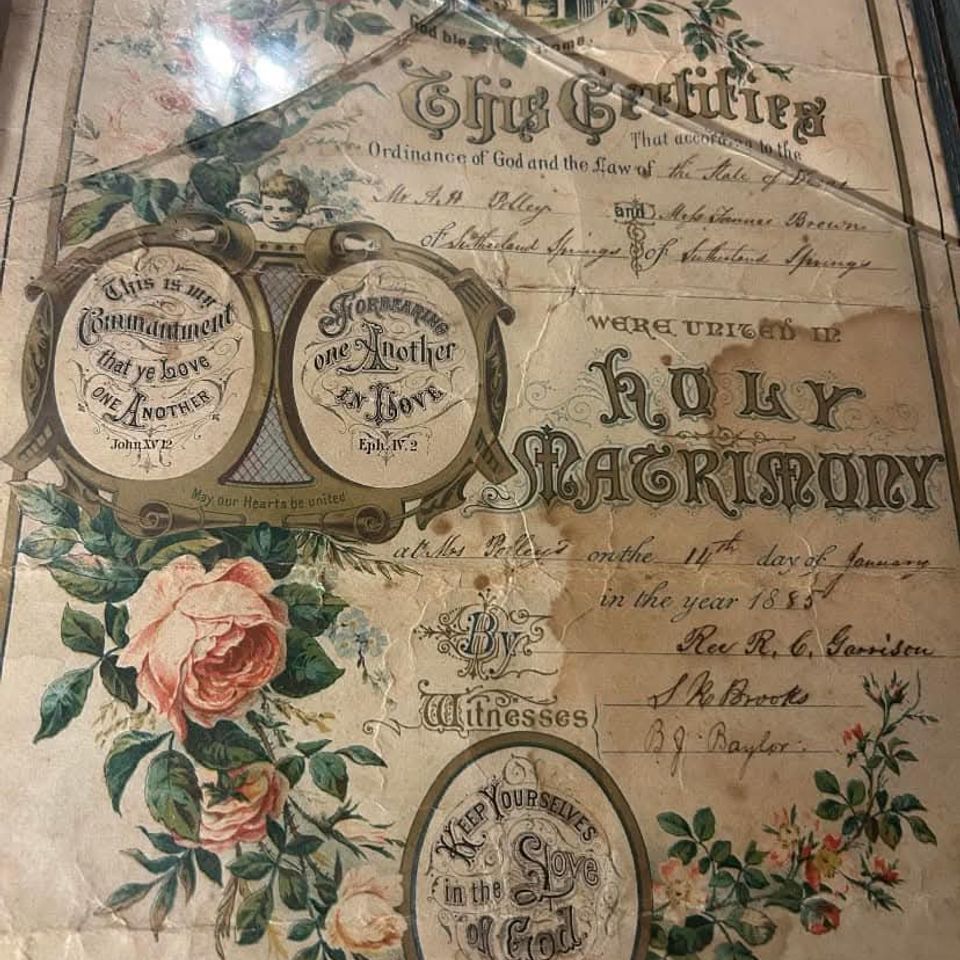 God bless our home.
This Certifies
That according to the
Ordinance of God and the Law of the State of Texas
Mr A H Polley and Miss Fannie Brown
of Sutherland Springs of Sutherland Springs
WERE UNITED IN
HOLY
MATRIMONY
at Mrs Polley's on the 14th day of January
in the year 1885
By Rev R. C. Garrison
Witnesses S R Brooks
B J Baylor
This is my
Commandment
that ye Love
ONE ANOTHER
John XV 12
FORBEARING
one Another
IN LOVE
Eph. IV. 2
May our Hearts be united
KEEP YOURSELVES
in the Love
of God.